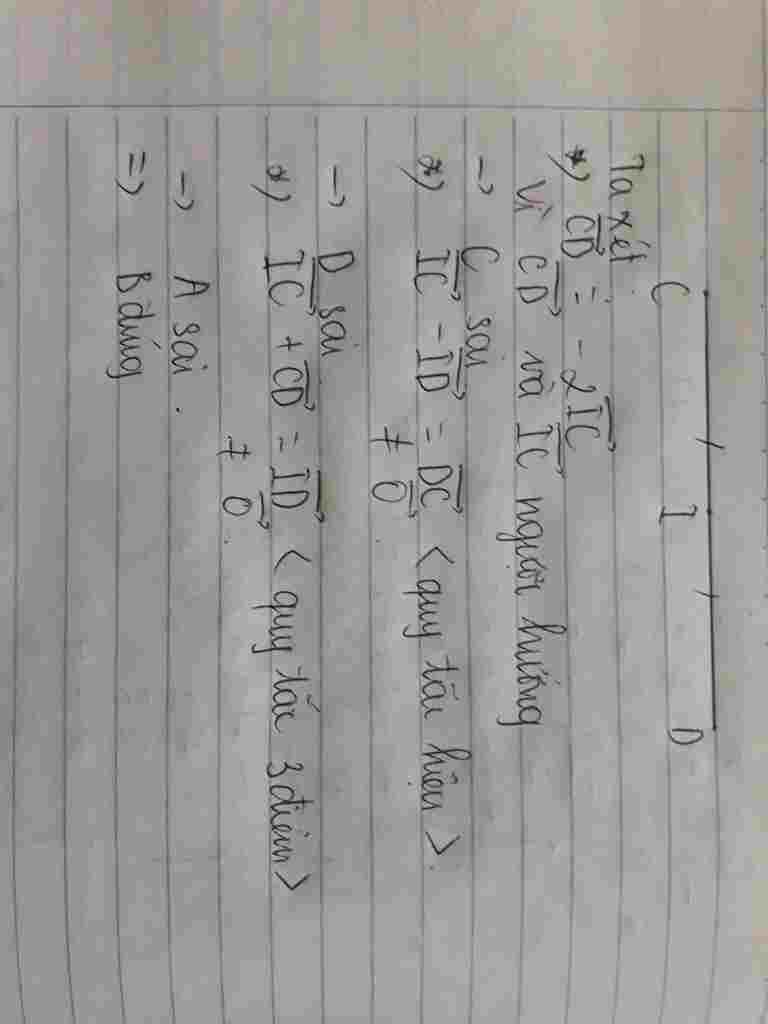 C I D
Ta xét
*) CD = -2IC
Vì CD và IC ngược hướng
→ C sai
*) IC - ID = DC < quy tắc hiệu >
≠ 0
→ D sai
*) IC + CD = ID < quy tắc 3 điểm >
≠ 0
→ A sai.
=> B đúng